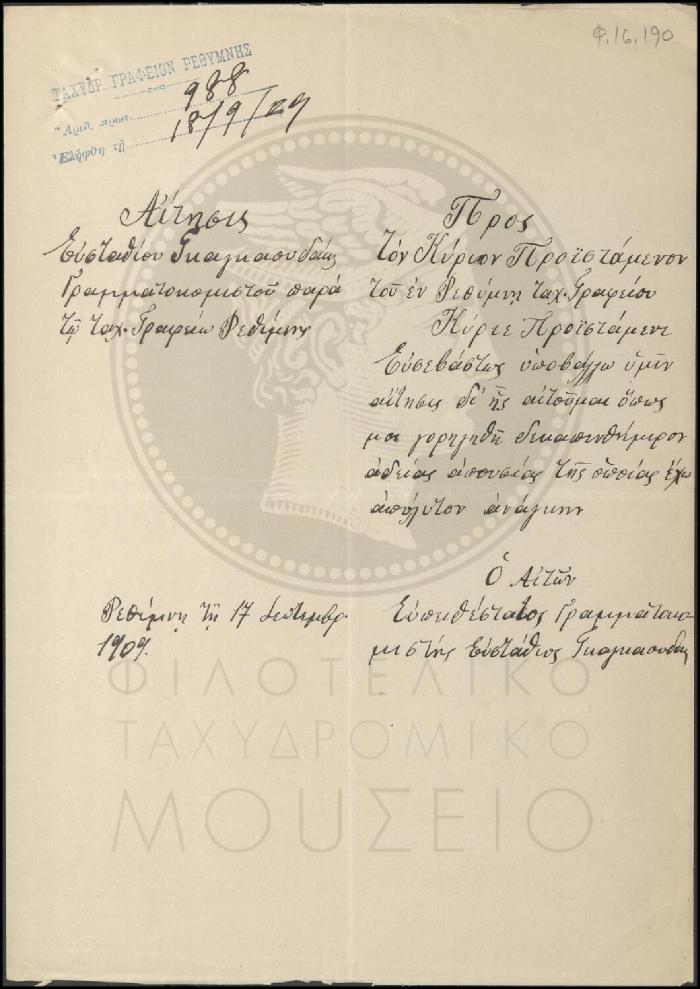 Φ.16.190
ΤΑΧΥΔΡ. ΓΡΑΦΕΙΟΝ ΡΕΘΥΜΝΗΣ
Ἀριθ. πρωτ. 988
Ἐλήφθη τῇ 18/9/09
Αἴτησις
Εὐσταθίου Γκαγκαουδάκη
Γραμματοκομιστοῦ παρὰ
τῷ ταχ. Γραφείῳ Ρεθίμνης
Πρὸς
τὸν Κύριον Προϊστάμενον
τοῦ ἐν Ρεθύμνῃ ταχ. Γραφείου
Κύριε Προϊστάμενε
Εὐσεβάστως ὑποβάλλω ὑμῖν
αἴτησις δι' ἧς αἰτοῦμαι ὅπως
μοι χορηγηθῆ δεκαπενθήμερον
ἀδείας ἀπουσίας τῆς ὁποίας ἔχω
ἀπόλυτον ἀνάγκην
Ὁ Αἰτῶν
Εὐπειθέστατος Γραμματοκο
μιστής Εὐστάθιος
Ρεθίμνῃ τῇ 17 Σεπτεμβρ.
1909.
ΦΙΛΟΤΕΛΙΚΟ
ΤΑΧΥΔΡΟΜΙΚΟ
ΜΟΥΣΕΙΟ